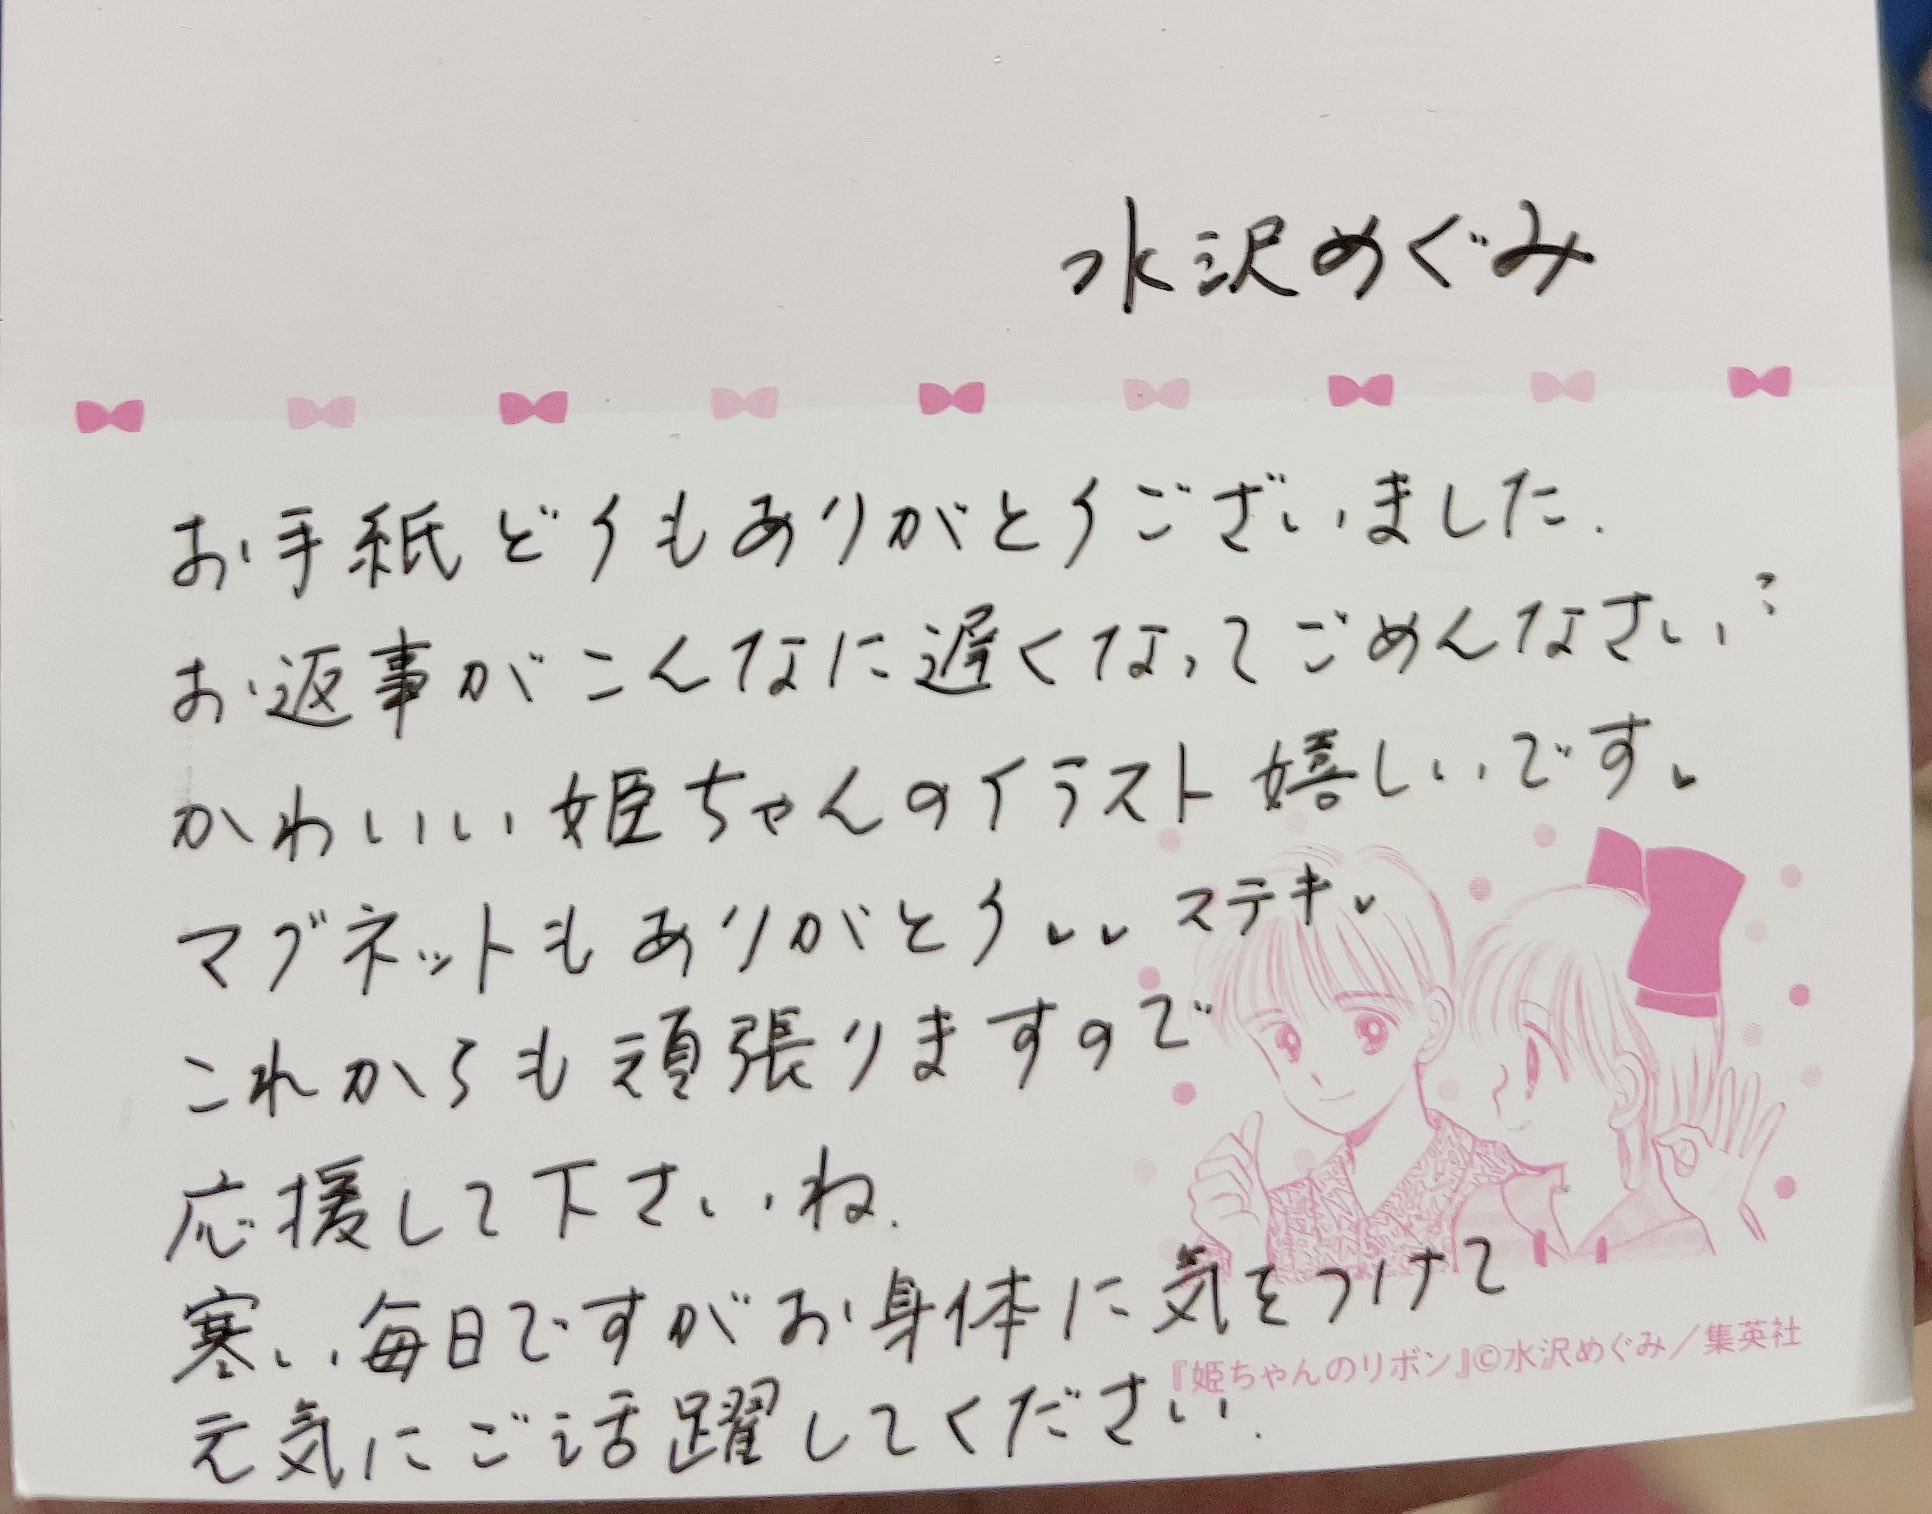 水沢めぐみ
お手紙どうもありがとうございました.
お返事がこんなに遅くなってごめんなさい
かわいい姫ちゃんのイラスト嬉しいです
マグネットもありがとう ステキ
これからも頑張りますので
応援して下さいね.
寒い毎日ですがお身体に気をつけて
『姫ちゃんのリボン』©水沢めぐみ／集英社
元気にご活躍してください.